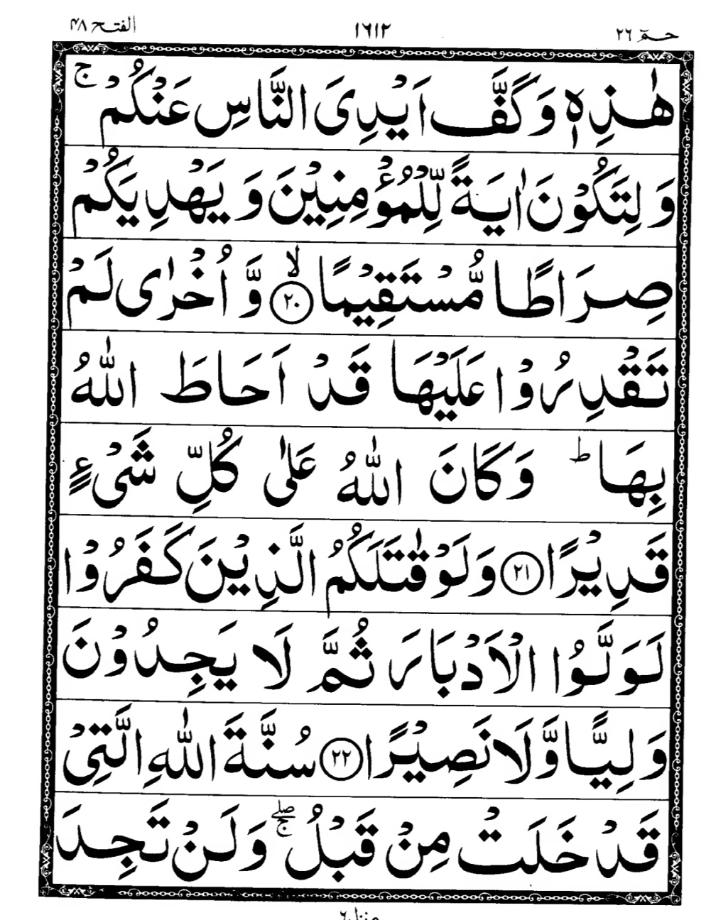 حٰمٓ ٢٦ ١٦١٢ الفتح ٤٨
هٰذِهٖ وَكَفَّ اَيْدِىَ النَّاسِ عَنْكُمْ ۚ
وَ لِتَكُوْنَ اٰيَةً لِّلْمُؤْمِنِيْنَ وَ يَهْدِيَكُمْ
صِرَاطًا مُّسْتَقِيْمًا ۙ‏﴿۲۰﴾ وَّ اُخْرٰى لَمْ
تَقْدِرُوْا عَلَيْهَا قَدْ اَحَاطَ اللّٰهُ
بِهَا ؕ وَكَانَ اللّٰهُ عَلٰى كُلِّ شَىْءٍ
قَدِيْرًا ﴿۲۱﴾ وَلَوْ قٰتَلَكُمُ الَّذِيْنَ كَفَرُوْا
لَوَلَّوُا الْاَدْبَارَ ثُمَّ لَا يَجِدُوْنَ
وَلِيًّا وَّلَا نَصِيْرًا ﴿۲۲﴾ سُنَّةَ اللّٰهِ الَّتِىْ
قَدْ خَلَتْ مِنْ قَبْلُ ۖۚ وَلَنْ تَجِدَ
منزل ٦